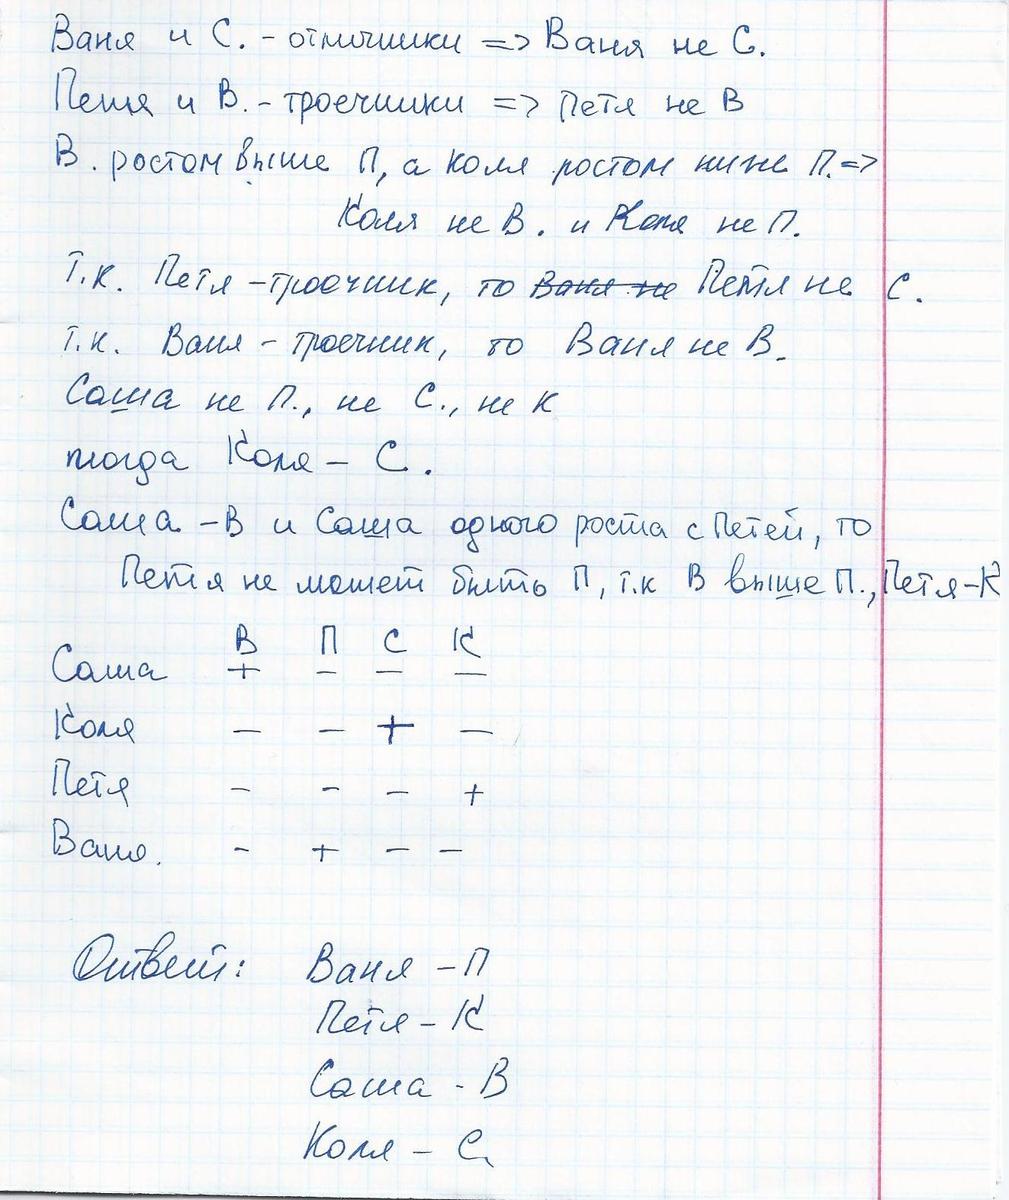 Ваня и С. - отличники => Ваня не С.
Петя и В. - троечники => Петя не В
В. ростом выше П, а Коля ростом ниже П. =>
Коля не В. и Коля не П.
Т.к. Петя - троечник, то Ваня не Петя не С.
Т.к. Ваня - троечник, то Ваня не В.
Саша не П., не С., не К
тогда Коля - С.
Саша - В и Саша одного роста с Петей, то
Петя не может быть П, т.к В выше П., Петя - К
В П С К
Саша + - - -
Коля - - + -
Петя - - - +
Ваня. - + - -
Ответ: Ваня - П
Петя - К
Саша - В
Коля - С.